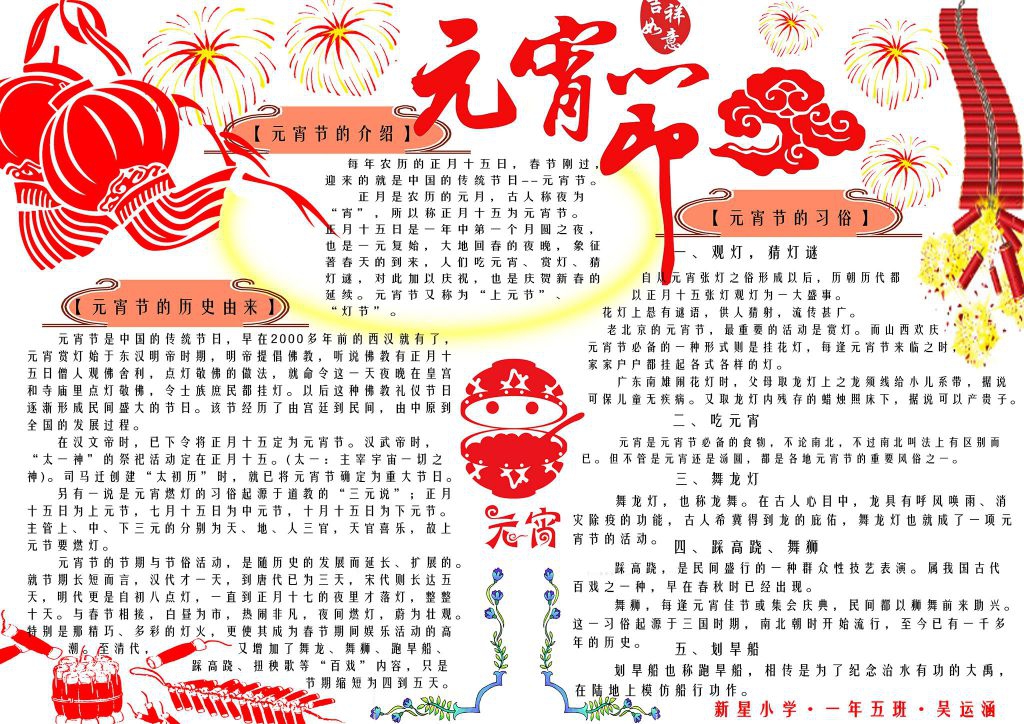 元宵节
吉祥
如意
【元宵节的介绍】
每年农历的正月十五日，春节刚过，
迎来的就是中国的传统节日--元宵节。
正月是农历的元月，古人称夜为
“宵”，所以称正月十五为元宵节。
正月十五日是一年中第一个月圆之夜，
也是一元复始，大地回春的夜晚，象征
著春天的到来，人们吃元宵、赏灯、猜
灯谜，对此加以庆祝，也是庆贺新春的
延续。元宵节又称为“上元节”、
“灯节”。
【元宵节的历史由来】
元宵节是中国的传统节日，早在2000多年前的西汉就有了，
元宵赏灯始于东汉明帝时期，明帝提倡佛教，听说佛教有正月十
五日僧人观佛舍利，点灯敬佛的做法，就命令这一天夜晚在皇宫
和寺庙里点灯敬佛，令士族庶民都挂灯。以后这种佛教礼仪节日
逐渐形成民间盛大的节日。该节经历了由宫廷到民间，由中原到
全国的发展过程。
在汉文帝时，已下令将正月十五定为元宵节。汉武帝时，
“太一神”的祭祀活动定在正月十五。(太一：主宰宇宙一切之
神)。司马迁创建“太初历”时，就已将元宵节确定为重大节日。
另有一说是元宵燃灯的习俗起源于道教的“三元说”；正月
十五日为上元节，七月十五日为中元节，十月十五日为下元节。
主管上、中、下三元的分别为天、地、人三官，天官喜乐，故上
元节要燃灯。
元宵节的节期与节俗活动，是随历史的发展而延长、扩展的。
就节期长短而言，汉代才一天，到唐代已为三天，宋代则长达五
天，明代更是自初八点灯，一直到正月十七的夜里才落灯，整整
十天。与春节相接，白昼为市，热闹非凡，夜间燃灯，蔚为壮观。
特别是那精巧、多彩的灯火，更使其成为春节期间娱乐活动的高
潮。至清代，又增加了舞龙、舞狮、跑旱船、
踩高跷、扭秧歌等“百戏”内容，只是
节期缩短为四到五天。
元宵
【元宵节的习俗】
一、观灯，猜灯谜
自从元宵张灯之俗形成以后，历朝历代都
以正月十五张灯观灯为一大盛事。
花灯上悬有谜语，供人猜射，流传甚广。
老北京的元宵节，最重要的活动是赏灯。而山西欢庆
元宵节必备的一种形式则是挂花灯，每逢元宵节来临之时，
家家户户都挂起各式各样的灯。
广东南雄闹花灯时，父母取龙灯上之龙须线给小儿系带，据说
可保儿童无疾病。又取龙灯内残存的蜡烛照床下，据说可以产贵子。
二、吃元宵
元宵是元宵节必备的食物，不论南北，不过南北叫法上有区别而
已。但不管是元宵还是汤圆，都是各地元宵节的重要风俗之一。
三、舞龙灯
舞龙灯，也称龙舞。在古人心目中，龙具有呼风唤雨、消
灾除疫的功能，古人希冀得到龙的庇佑，舞龙灯也就成了一项元
宵节的活动。
四、踩高跷、舞狮
踩高跷，是民间盛行的一种群众性技艺表演。属我国古代
百戏之一种，早在春秋时已经出现。
舞狮，每逢元宵佳节或集会庆典，民间都以狮舞前来助兴。
这一习俗起源于三国时期，南北朝时开始流行，至今已有一千多
年的历史。
五、划旱船
划旱船也称跑旱船，相传是为了纪念治水有功的大禹，
在陆地上模仿船行功作。
新星小学·一年五班·吴运涵